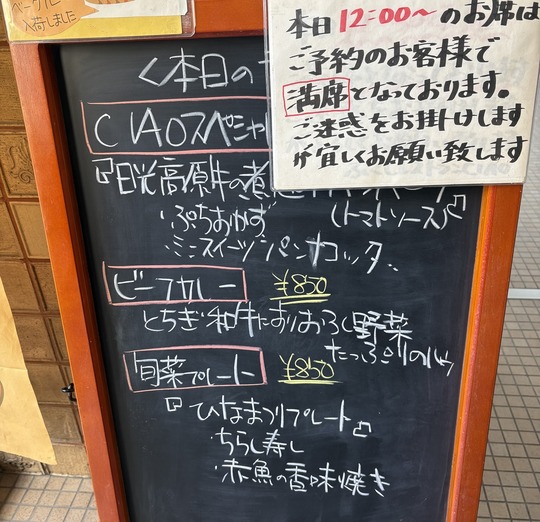 ベーグル
入荷しました
本日12:00〜のお席は
ご予約のお客様で
満席となっております。
ご迷惑をお掛けします
が宜しくお願い致します
<本日の
CIAOスペシャ
『日光高原牛の煮
(トマトソース)』
・ぷちおかず
・ミニスイーツ パンナコッタ
ビーフカレー ¥850
とちぎ和牛にすりおろし野菜
たっぷりのルゥ
旬菜プレート ¥850
『ひなまつりプレート』
・ちらし寿し
・赤魚の香味焼き